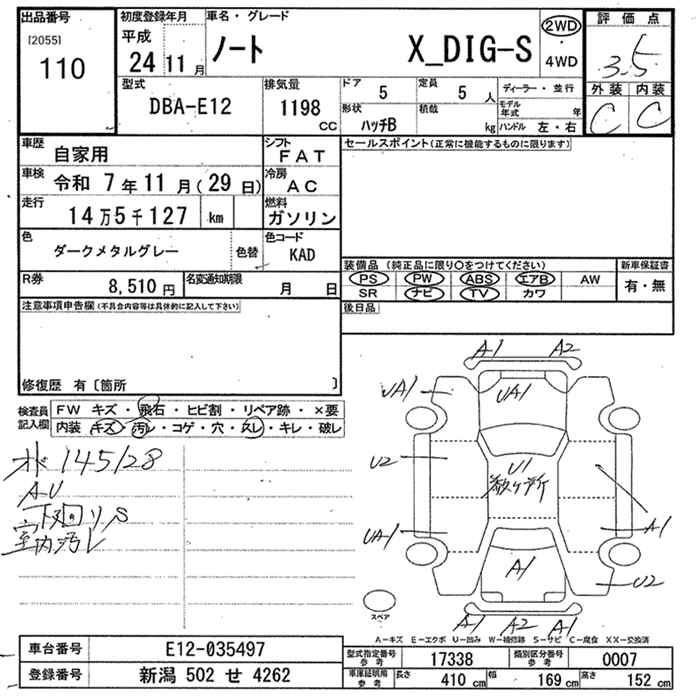 出品番号
[2055]
110
初度登録年月
平成
24 11 月
車名・グレード
ノート X_DIG-S
2WD
・
4WD
評価点
3.5
外装 内装
C C
型式
DBA-E12
排気量
1198 CC
ドア 5
定員 5 人
形状 ハッチB
積載 kg
ディーラー・並行
モデル年式 年
ハンドル 左・右
車歴 自家用
シフト FAT
車検 令和 7年11月(29日)
冷房 AC
走行 14万5千127 km
燃料 ガソリン
色 ダークメタルグレー 色替
色コード KAD
R券 8,510 円
名変通知期限 月 日
セールスポイント(正常に機能するものに限ります)
装備品 (純正品に限り○をつけてください)
PS PW ABS エアB AW
SR ナビ TV カワ
新車保証書
有・無
後日品
注意事項申告欄(不具合内容等は具体的に記入して下さい)
修復歴 有〔箇所 〕
検査員記入欄
FW キズ・飛石・ヒビ割・リペア跡・×要
内装 キズ・汚レ・コゲ・穴・スレ・キレ・破レ
145128
AU
下廻りS
室内汚レ
A1 A2
UA1 UA1
U2
U1
数ヶ所
UA1 A1
A1
U2
A1 A2 A1
スペア
A-キズ E-エクボ U-凹み W-補修跡 S-サビ C-腐食 XX-交換済
車台番号 E12-035497
登録番号 新潟 502 せ 4262
型式指定番号 参考 17338
類別区分番号 参考 0007
車庫証明用 参考
長さ 410 cm
幅 169 cm
高さ 152 cm